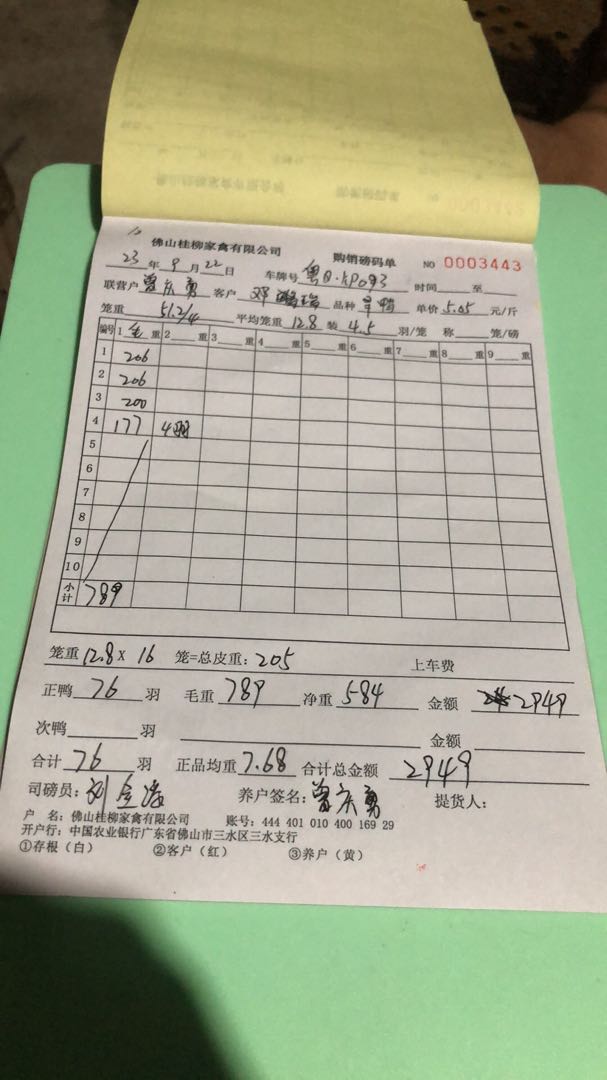 佛山桂柳家禽有限公司 购销磅码单 NO 0003443
23年9月22日 车牌号 时间 至
联营户 曾庆勇 客户 邓 品种 单价 5.05 元/斤
笼重 51.2/4 平均笼重 12.8 装 4.5 羽/笼 称 笼/磅
编号 1 毛 重 2 重 3 重 4 重 5 重 6 重 7 重 8 重 9 重
1 206
2 206
3 200
4 177 4羽
5
6
7
8
9
10
小计 789
笼重 12.8 X 16 笼=总皮重: 205 上车费
正鸭 76 羽 毛重 789 净重 584 金额 2949
次鸭 羽 金额
合计 76 羽 正品均重 7.68 合计总金额 2949
司磅员: 刘 养户签名: 曾庆勇 提货人:
户 名: 佛山桂柳家禽有限公司 账号: 444 401 010 400 169 29
开户行: 中国农业银行广东省佛山市三水区三水支行
①存根（白） ②客户（红） ③养户（黄）